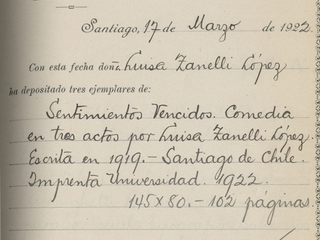 Santiago, 17 de Marzo de 1922.
Con esta fecha doña Luisa Zanelli López
ha depositado tres ejemplares de:
Sentimientos Vencidos. Comedia
en tres actos por Luisa Zanelli López.
Escrita en 1919.- Santiago de Chile.
Imprenta Universidad. 1922.
145 x 80.- 102 páginas.